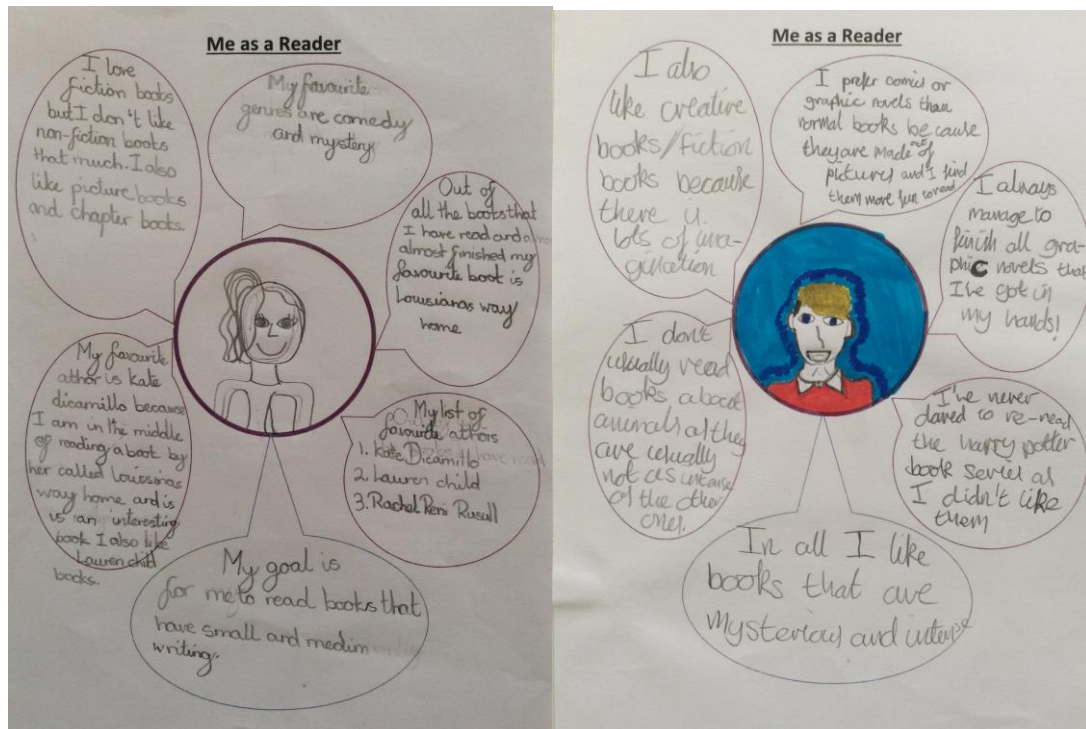 Me as a Reader
I love
fiction books
but I don't like
non-fiction books
that much. I also
like picture books
and chapter books.
My favourite
genres are comedy
and mystery
Out of
all the books that
I have read and
almost finished my
favourite boot is
Louisianas way
home
My favourite
athor is kate
dicamillo because
I am in the middle
of reading a boot by
her called Louisinas
way home and is
is an interesting
book I also like
Lauren child
books.
My list of
favourite athors
1. Kate Dicamillo
2. Lauren child
3. Rachel Reni Rusull
My goal is
for me to read books that
have small and medim
writing.
Me as a Reader
I also
like creative
books/fiction
books because
there is
lots of ima-
gination
I prefer comics or
graphic novels than
normal books because
they are made of
pictures and I find
them more fun to read
I always
manage to
finish all gra-
phic novels that
I've got in
my hands!
I don't
usually read
books about
animals as they
are usually
not as intense
as the other
ones.
I've never
dared to re-read
the harry potter
book series as
I didn't like
them
In all I like
books that are
mysterious and intense